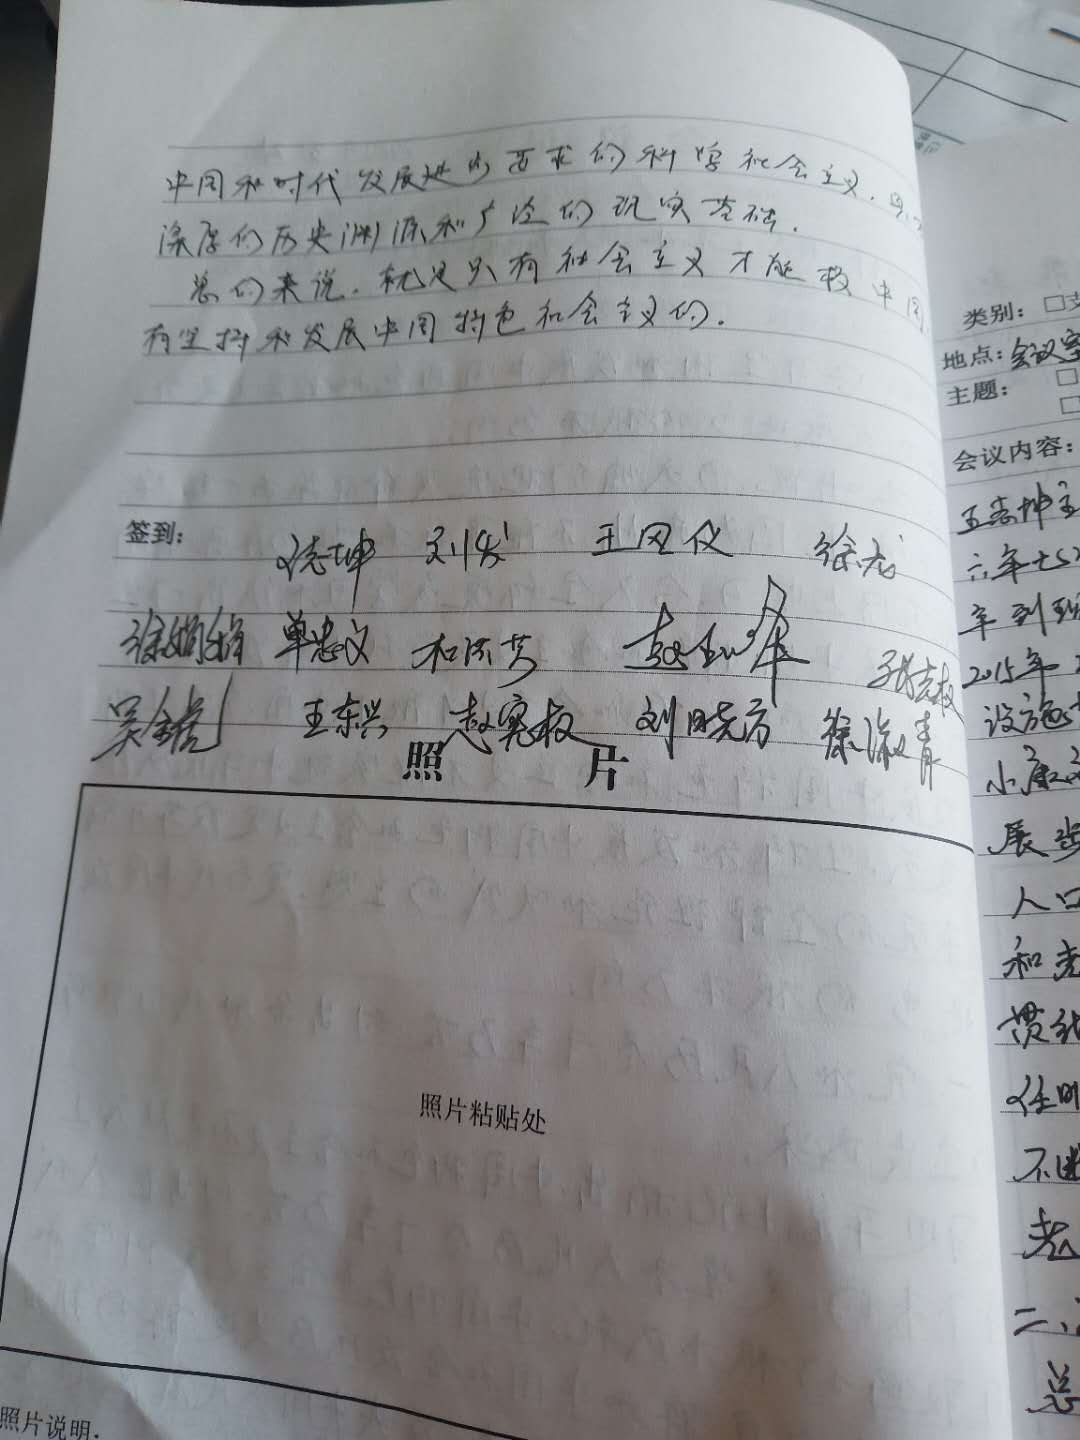 中国和时代发展进步要求的科学社会主义，
深厚的历史渊源和广泛的现实基础．
总的来说．就是只有社会主义才能救中国
有坚持和发展中国特色社会主义的．
签到：
志坤 刘发 王风仪 徐龙
徐娟娟 单忠文 张志权
吴全虎 王东兴 赵宪权 刘晓方 徐淑青
照 片
照片粘贴处
照片说明．
类别：□
地点：会议室
主题：□
□
会议内容：
王志坤主
六年七
年到
2015年
设施
小康
展
人口
和
贯彻
任
不
二、
总